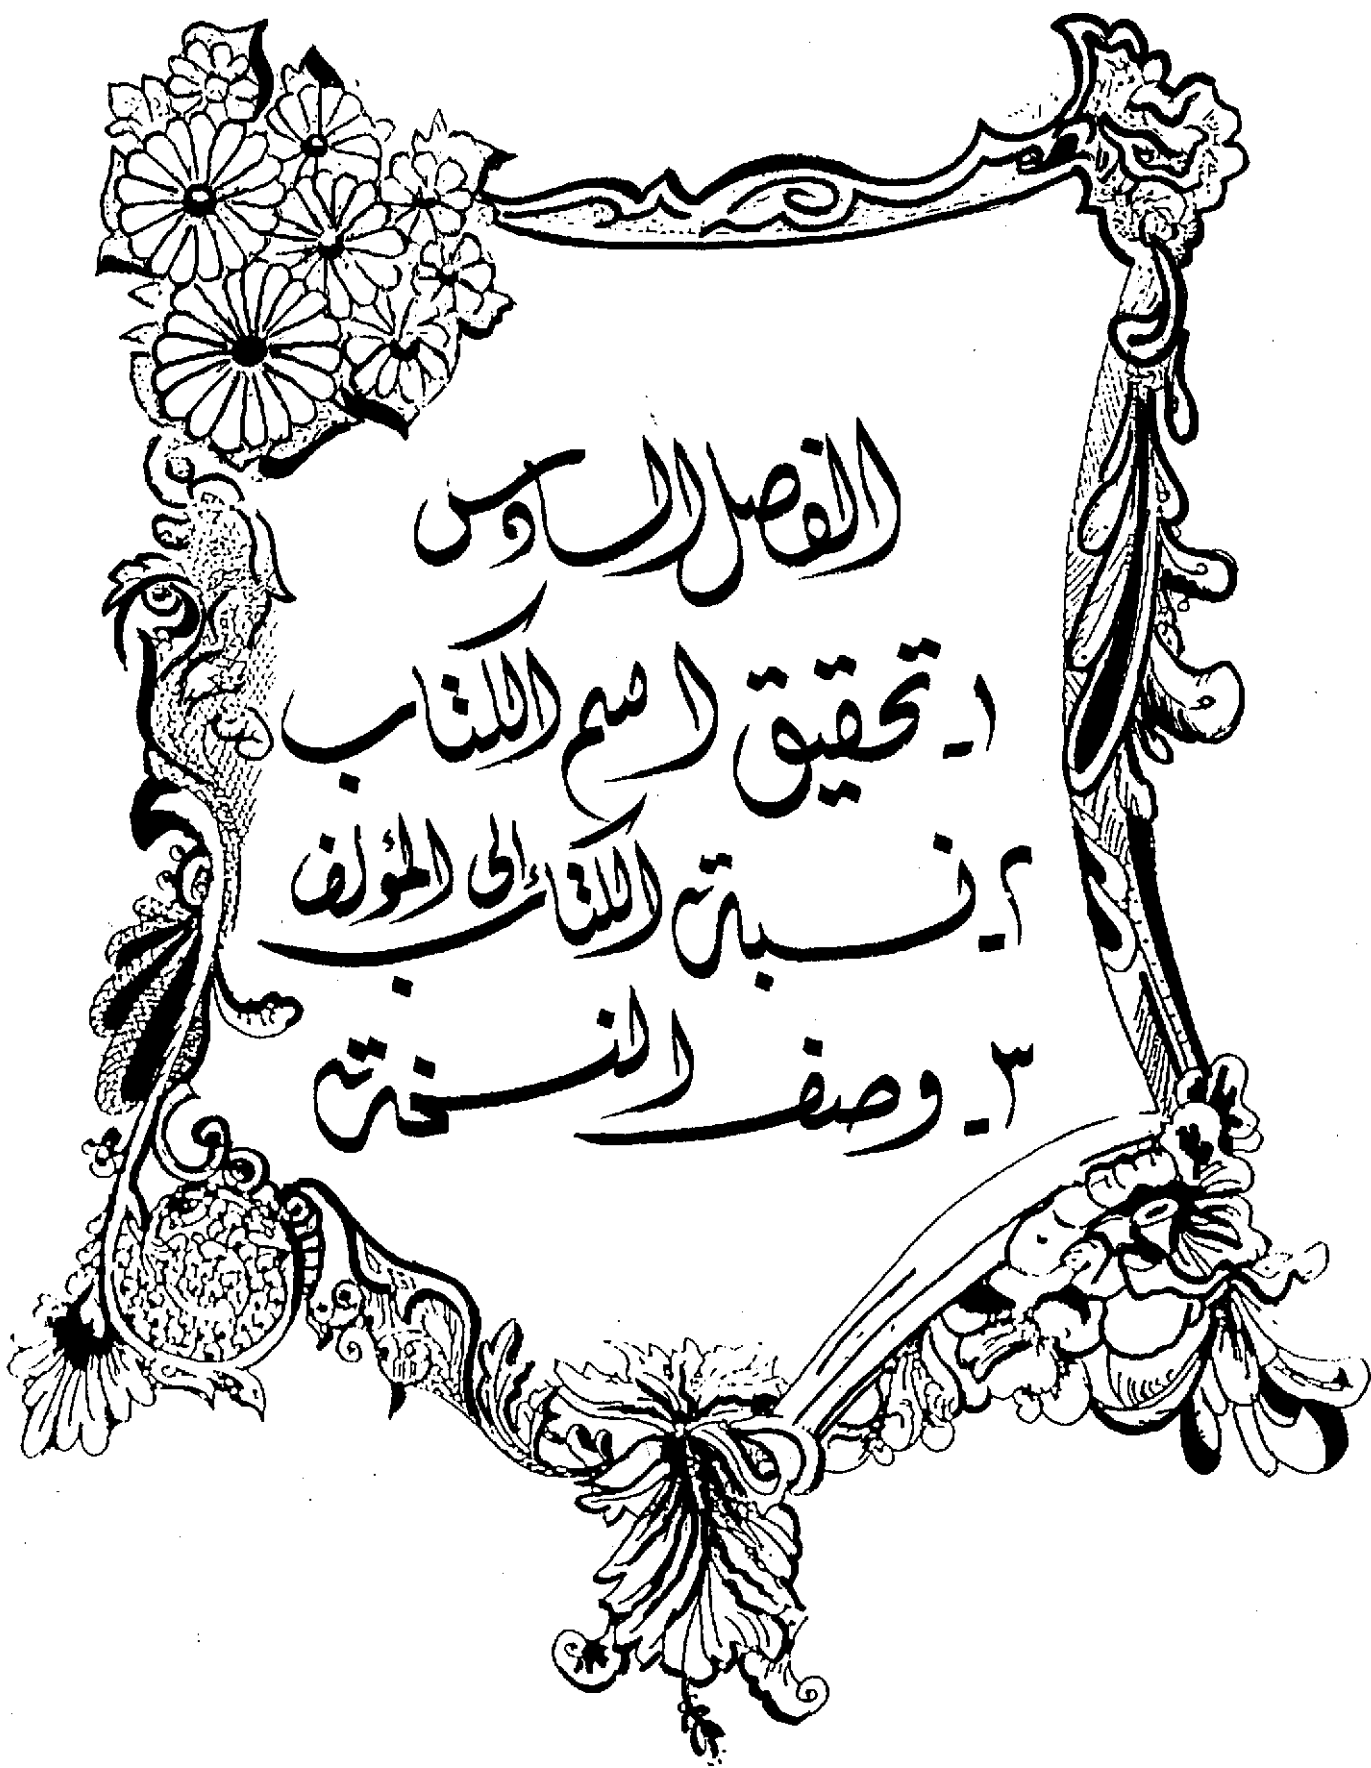 الفصل السادس
١- تحقيق اسم الكتاب
٢- نسبة الكتاب إلى المؤلف
٣- وصف النسخة